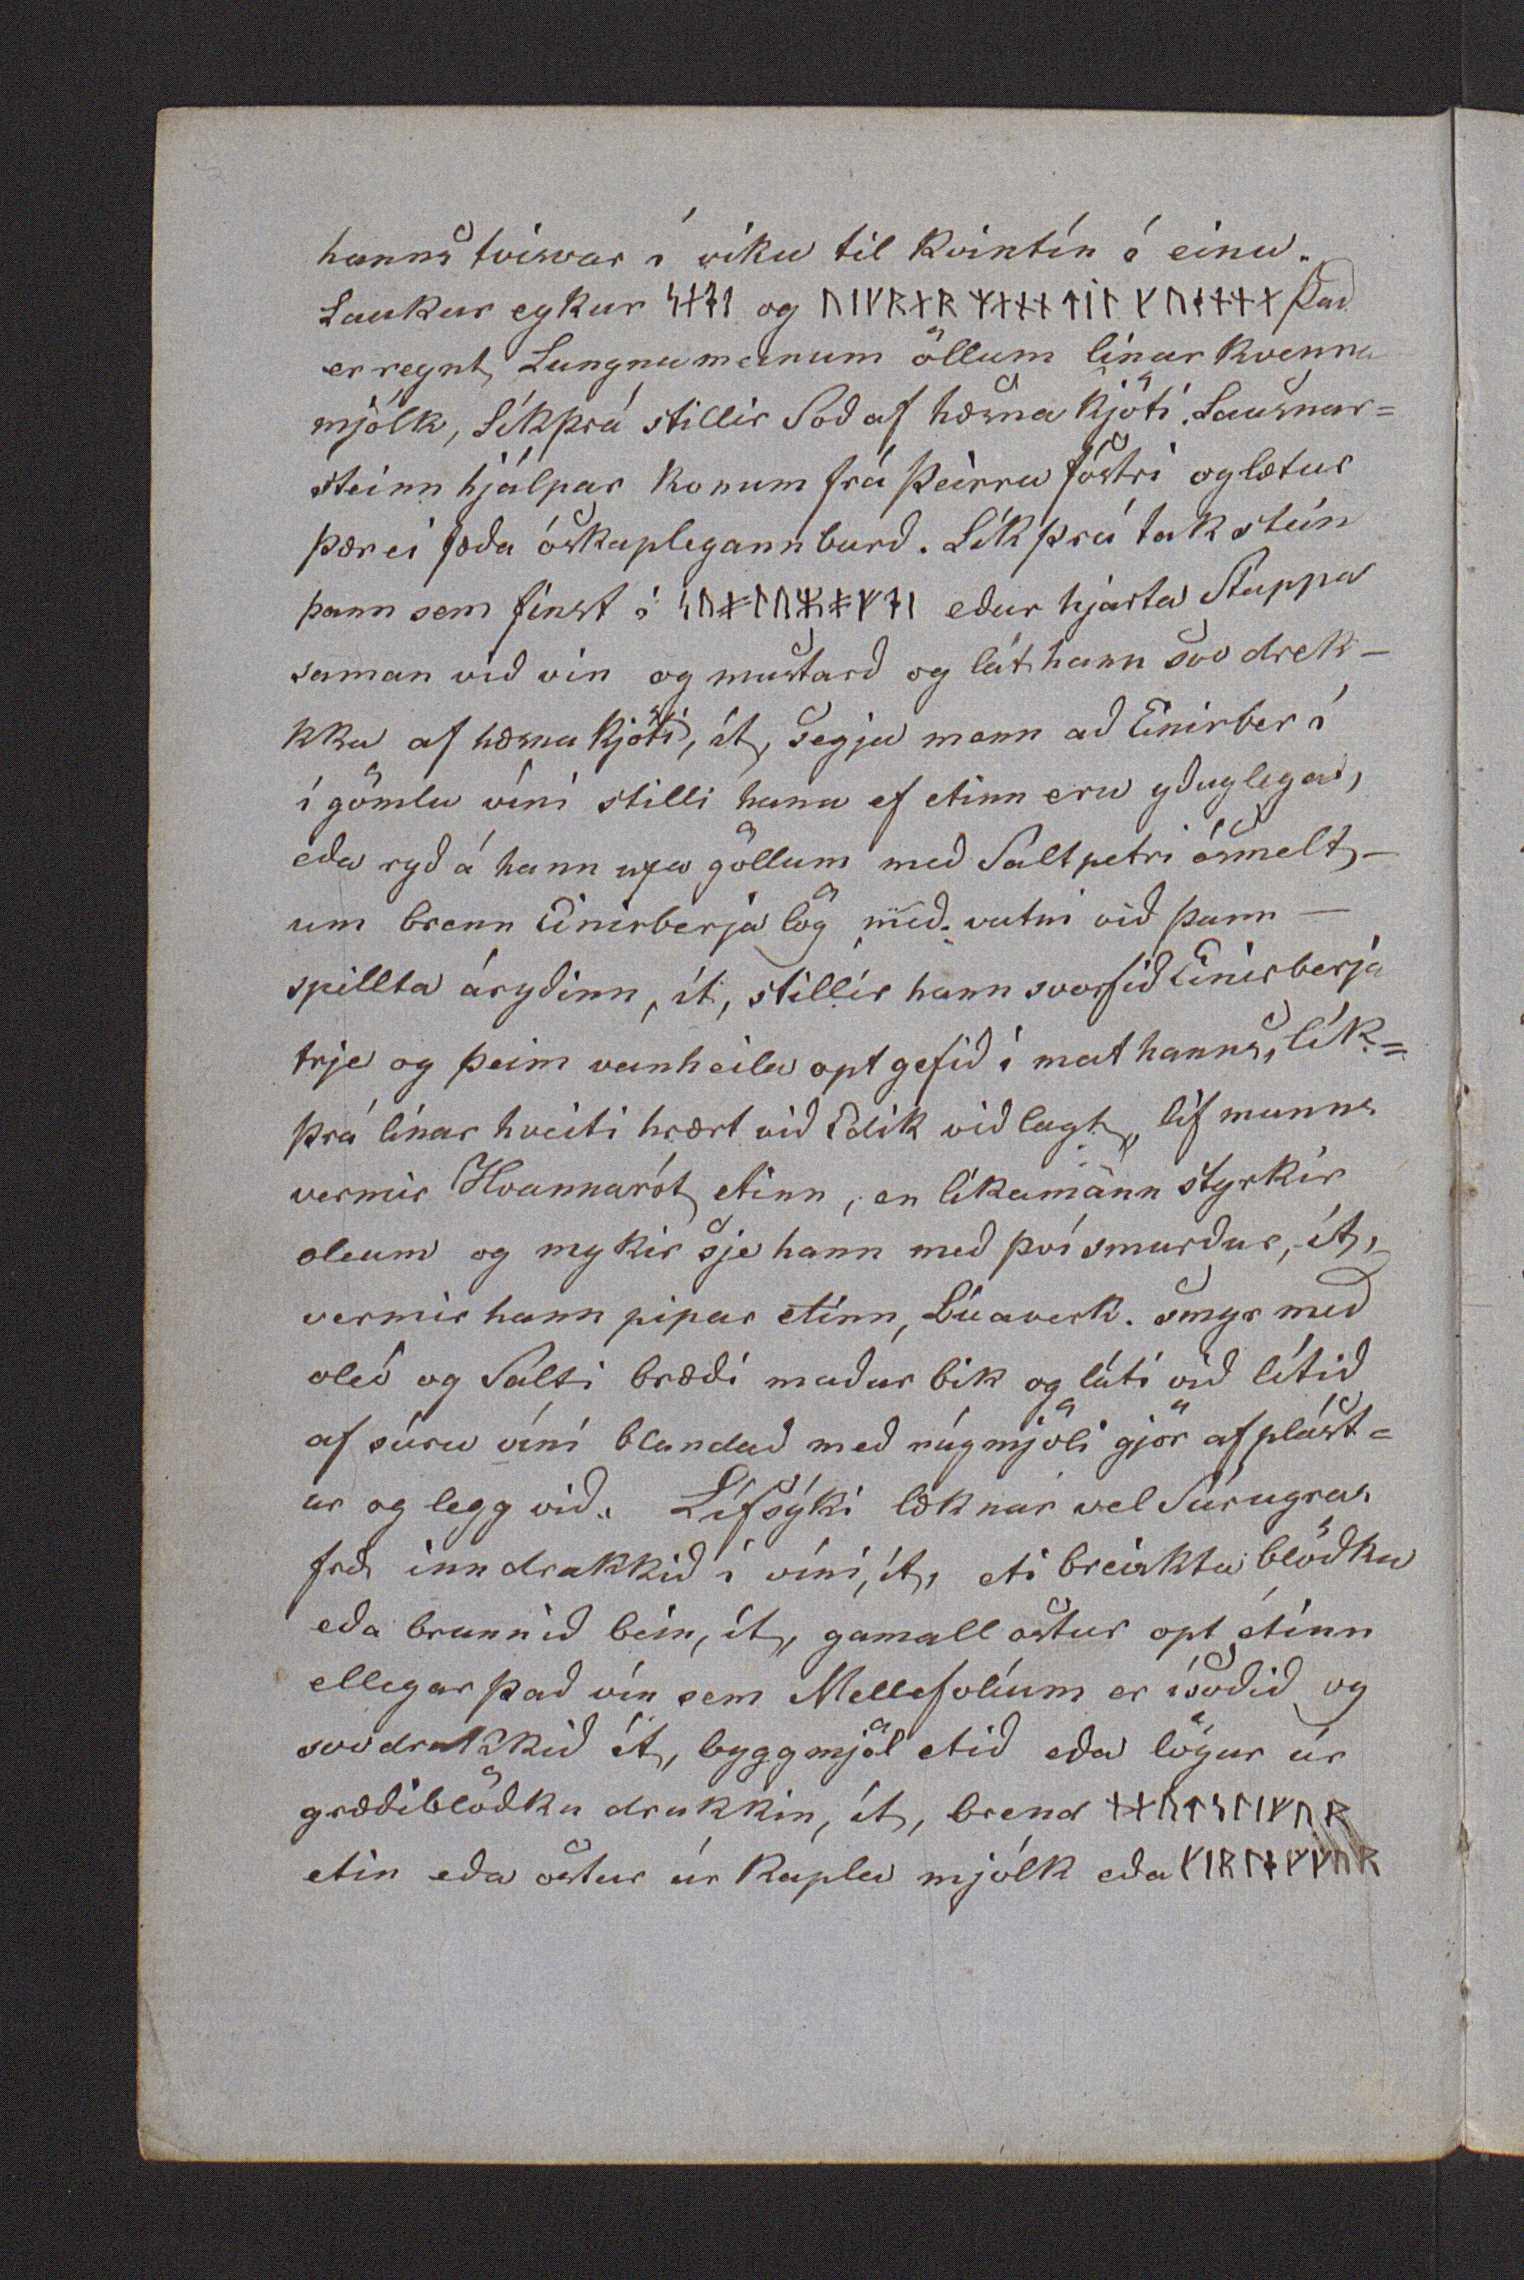 hanns tvisvar í viku til kvintín í einu.
Laukur eykur ᛋᛅᚦᛁ og ᚢᛁᚴᚱᛅᚱ ᛘᛅᚾᚾ ᛏᛁᛚ ᚴᚢᛁᚾᚾᛅ það
er reynt, Lungnameinum öllum línar kvenna
mjólk, Líkþrá stillir Soð af hæsna kjöti. Lausnar=
steinn hjálpar konum frá þeirra fóstri og lætur
þær ei fæða óskaplegann burð. Líkþrá tak stein
þann sem finst í eður hjarta Stappa
saman við vín og mustarð og lát hann svo drek-
kka af hæsna kjöti, ít, segja menn að Einirber í
í gömlu víni stilli hana ef etinn eru yðuglega,
eða ryð á hann uxa göllum með Saltpetri ósmelt-
um brenn Einirberja lög með vatni við þann -
spillta áryðinn, ít, stillir hann svorfið Einirberja
trje og þeim vanheila opt gefið í mat hanns, lík=
þrá línar hveiti hrært við Edik við lagt, líf manns
vermir Hvannarót etinn, en líkamann styrkir
oleum og mykir sje hann með því smurður, ít,
vermir hann pipar etinn, Lúaverk. smyr með
oleó og Salti bræði maður bik og láti við lítið
af súru víni blandað með rúgmjöli gjör af plást=
ur og legg við. Lífsýki læknar vel Súrugras
frð inndrukkið í víni, ít, eti breiskta blöðku
eða brunnið bein, ít, gamall ostur opt etinn
ellegar það vín sem Mellefolíum er ísoðið og
svo drukkið ít, byggmjöl etið eða lögur úr
græðiblöðku drukkin, ít, brend ᚾᛅᚢᛏᛋᛚᛁᚠᚢᚱ
etin eða ostur úr kapla mjólk eða